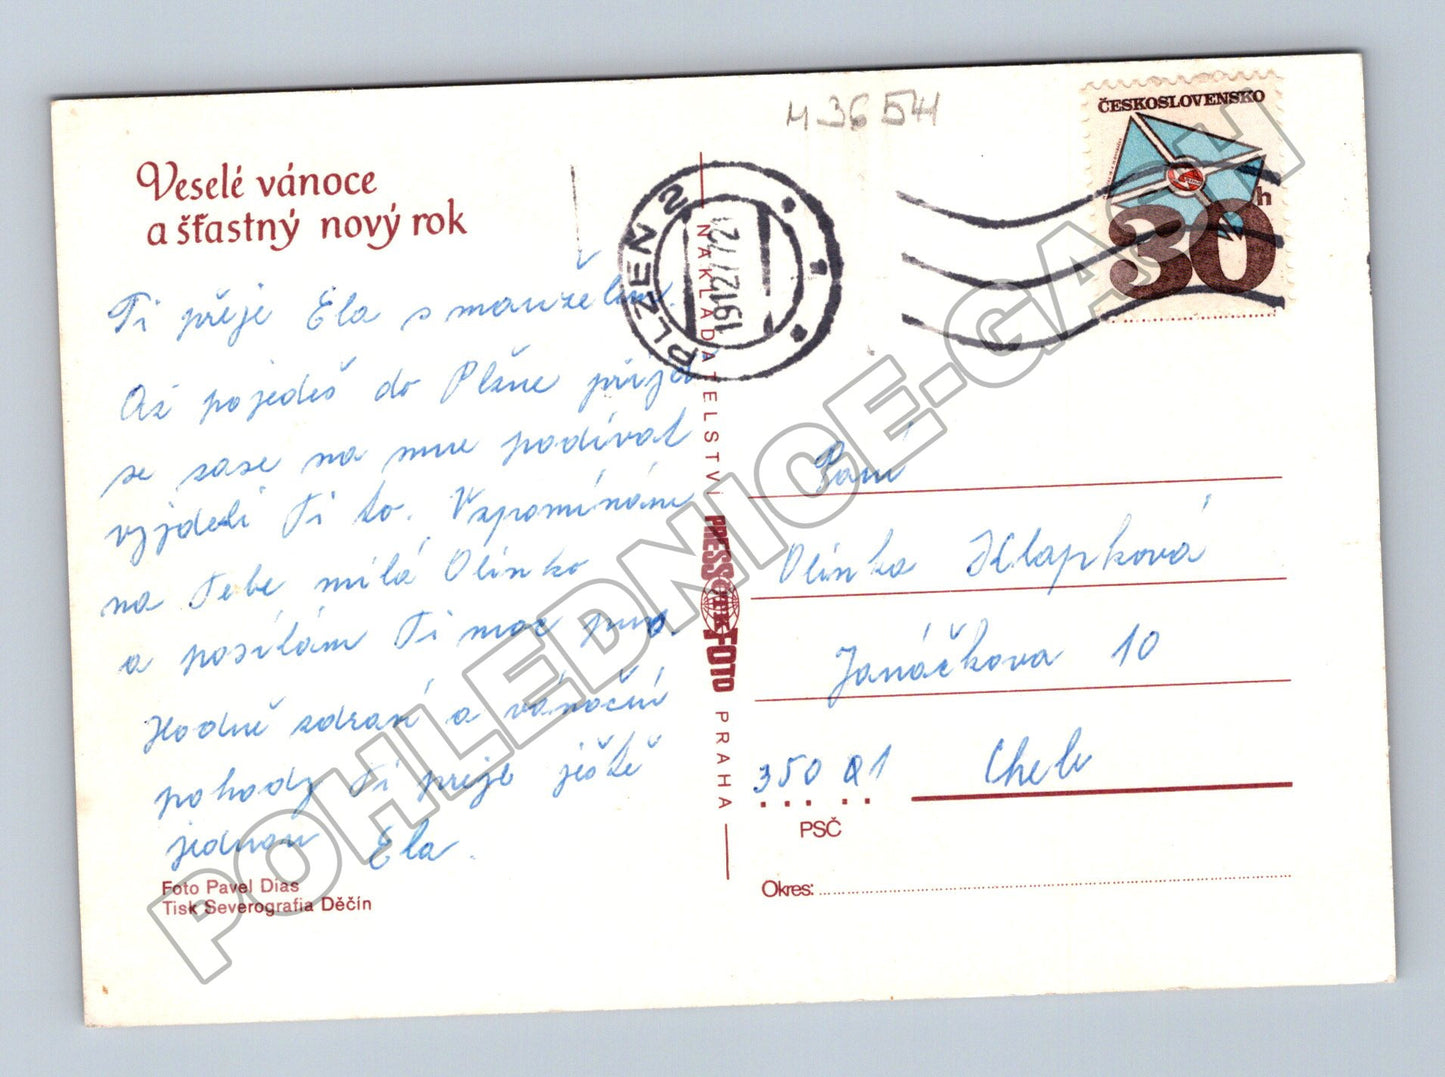 Veselé vánoce
a šťastný nový rok
Ti přeje Ela s manželem.
Až pojedeš do Plzně přijď
se zase na mne podívat
vyjdeli Ti to. Vzpomínám
na Tebe milá Olinko
a posílám Ti moc pus.
Hodně zdraví a vánoční
pohody Ti přeje ještě
jednou Ela.
Foto Pavel Dias
Tisk Severografia Děčín
M 36 541
PLZEŇ 2
NAKLADATELSTVÍ
PRESSFOTO
ČTK
PRAHA
ČESKOSLOVENSKO
30 h
Paní
Olinka Klapková
Janáčkova 10
350 01 Cheb
PSČ
Okres:
POHLEDNICE-GASH